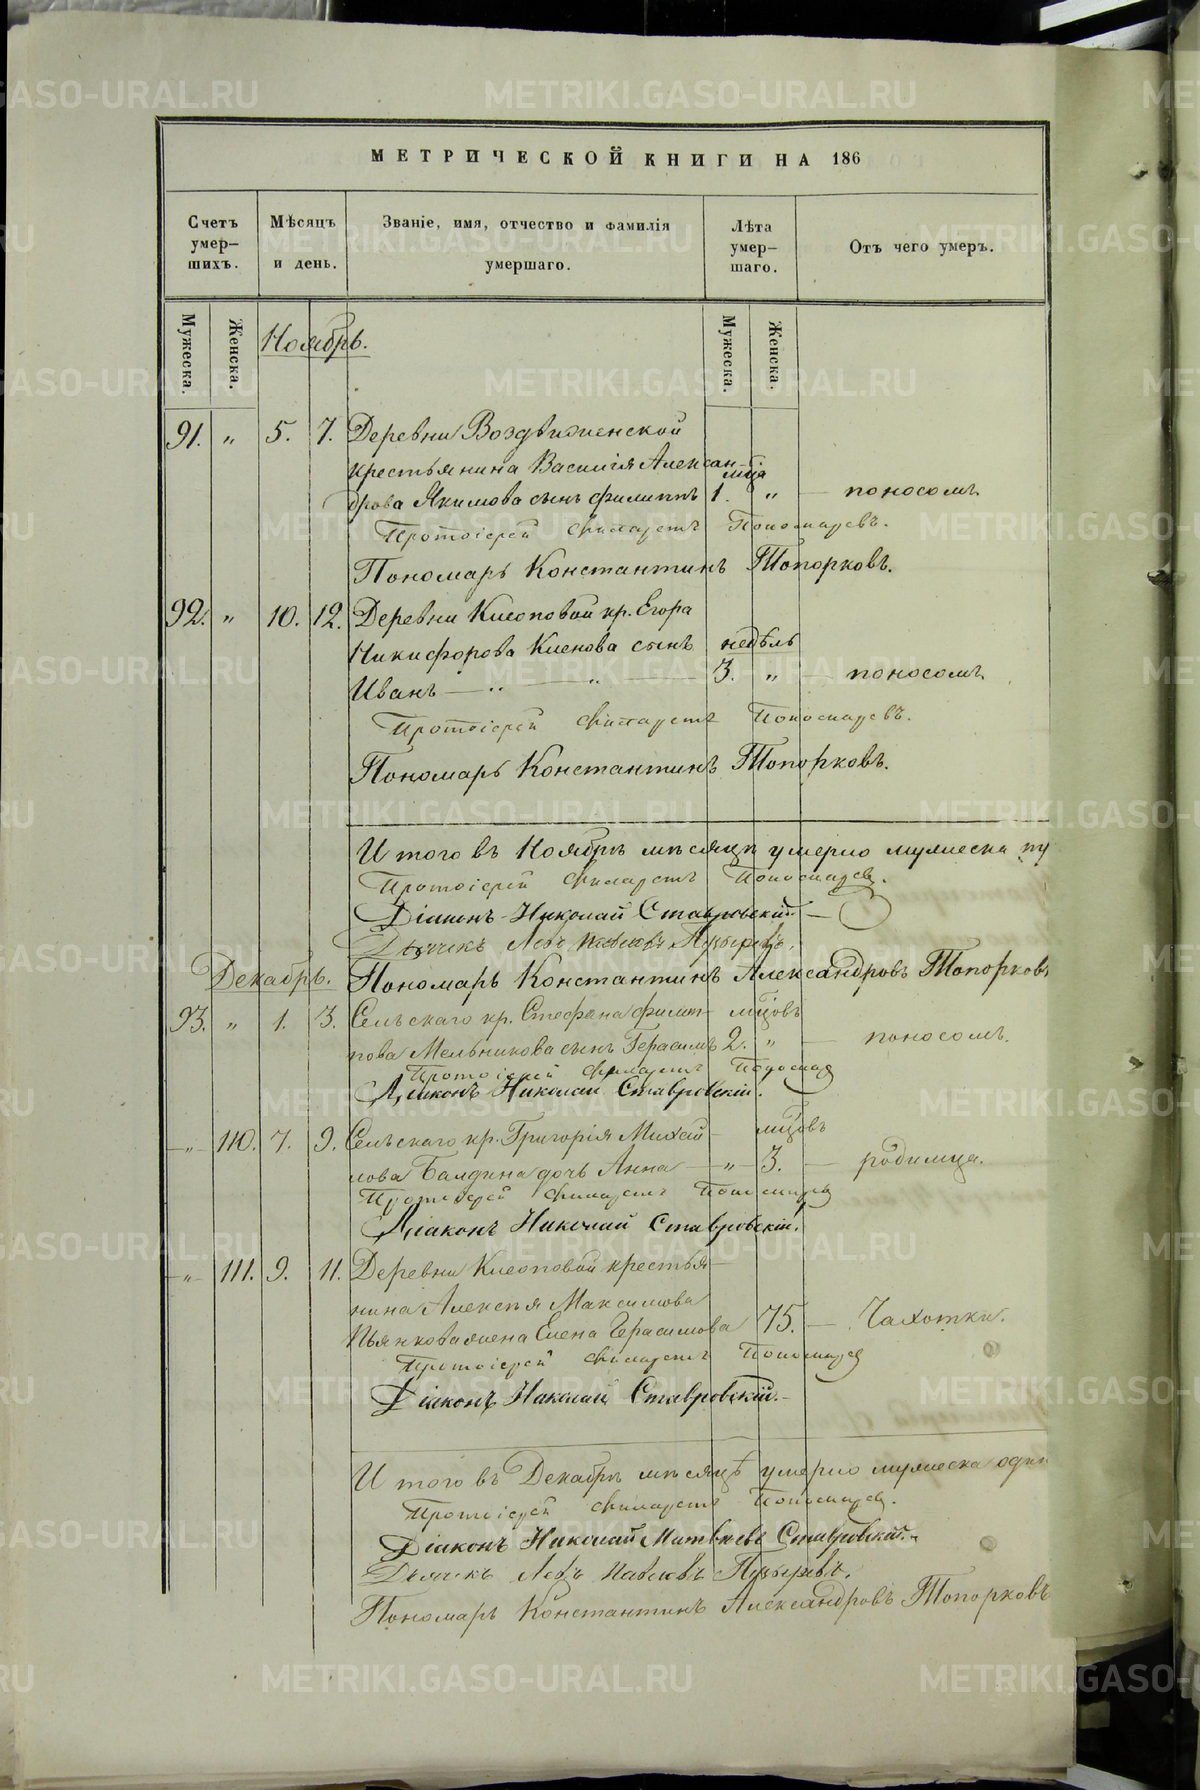 МЕТРИЧЕСКОЙ КНИГИ НА 186
Счетъ умер-шихъ.
Мѣсяцъ и день.
Званіе, имя, отчество и фамилія умершаго.
Лѣта умер-шаго.
Отъ чего умеръ.
Мужеска.
Женска.
Мужеска.
Женска.
Ноябрь.
91. " 5. 7. Деревни Воздвиженской
крестьянина Василія Алексан-
дрова Якимова сынъ Филиппъ 1. " — поносомъ
Протоіерей Филаретъ Пономаревъ.
Пономарь Константинъ Топорковъ.
92. " 10. 12. Деревни Кисоповой кр. Егора
Никифорова Кисенова сынъ недѣль
Иванъ — " — " — 3. " — поносомъ
Протоіерей Филаретъ Пономаревъ.
Пономарь Константинъ Топорковъ.
Итого въ Ноябрѣ мѣсяцѣ умерло мужеска
Протоіерей Филаретъ Пономарев.
Діаконъ Николай Ставровскій
Дьячекъ Левъ Павловъ
Декабрь. Пономарь Константинъ Александровъ Топорковъ
93. " 1. 3. Сельскаго кр. Стефана Филип-
пова Мельникова сынъ Герасимъ 2. " — поносомъ.
Протоіерей Филаретъ
Діаконъ Николай Ставровскій.
" 110. 7. 9. Сельскаго кр. Григорія Михай-
лова Балдина дочь Анна — " 3. — родимца.
Протоіерей Филаретъ Пономарев
Діаконъ Николай Ставровскій.
" 111. 9. 11. Деревни Кисоповой крестья-
нина Алексѣя Максимова
Пьянкова жена Елена Герасимова 75. — Чахотки.
Протоіерей Филаретъ Пономарев
Діаконъ Николай Ставровскій.
Итого въ Декабрѣ мѣсяцѣ умерло мужеска один
Протоіерей Филаретъ Пономарев.
Діаконъ Николай Матвѣевъ Ставровскій
Дьячекъ Левъ Павловъ
Пономарь Константинъ Александровъ Топорковъ
METRIKI.GASO-URAL.RU